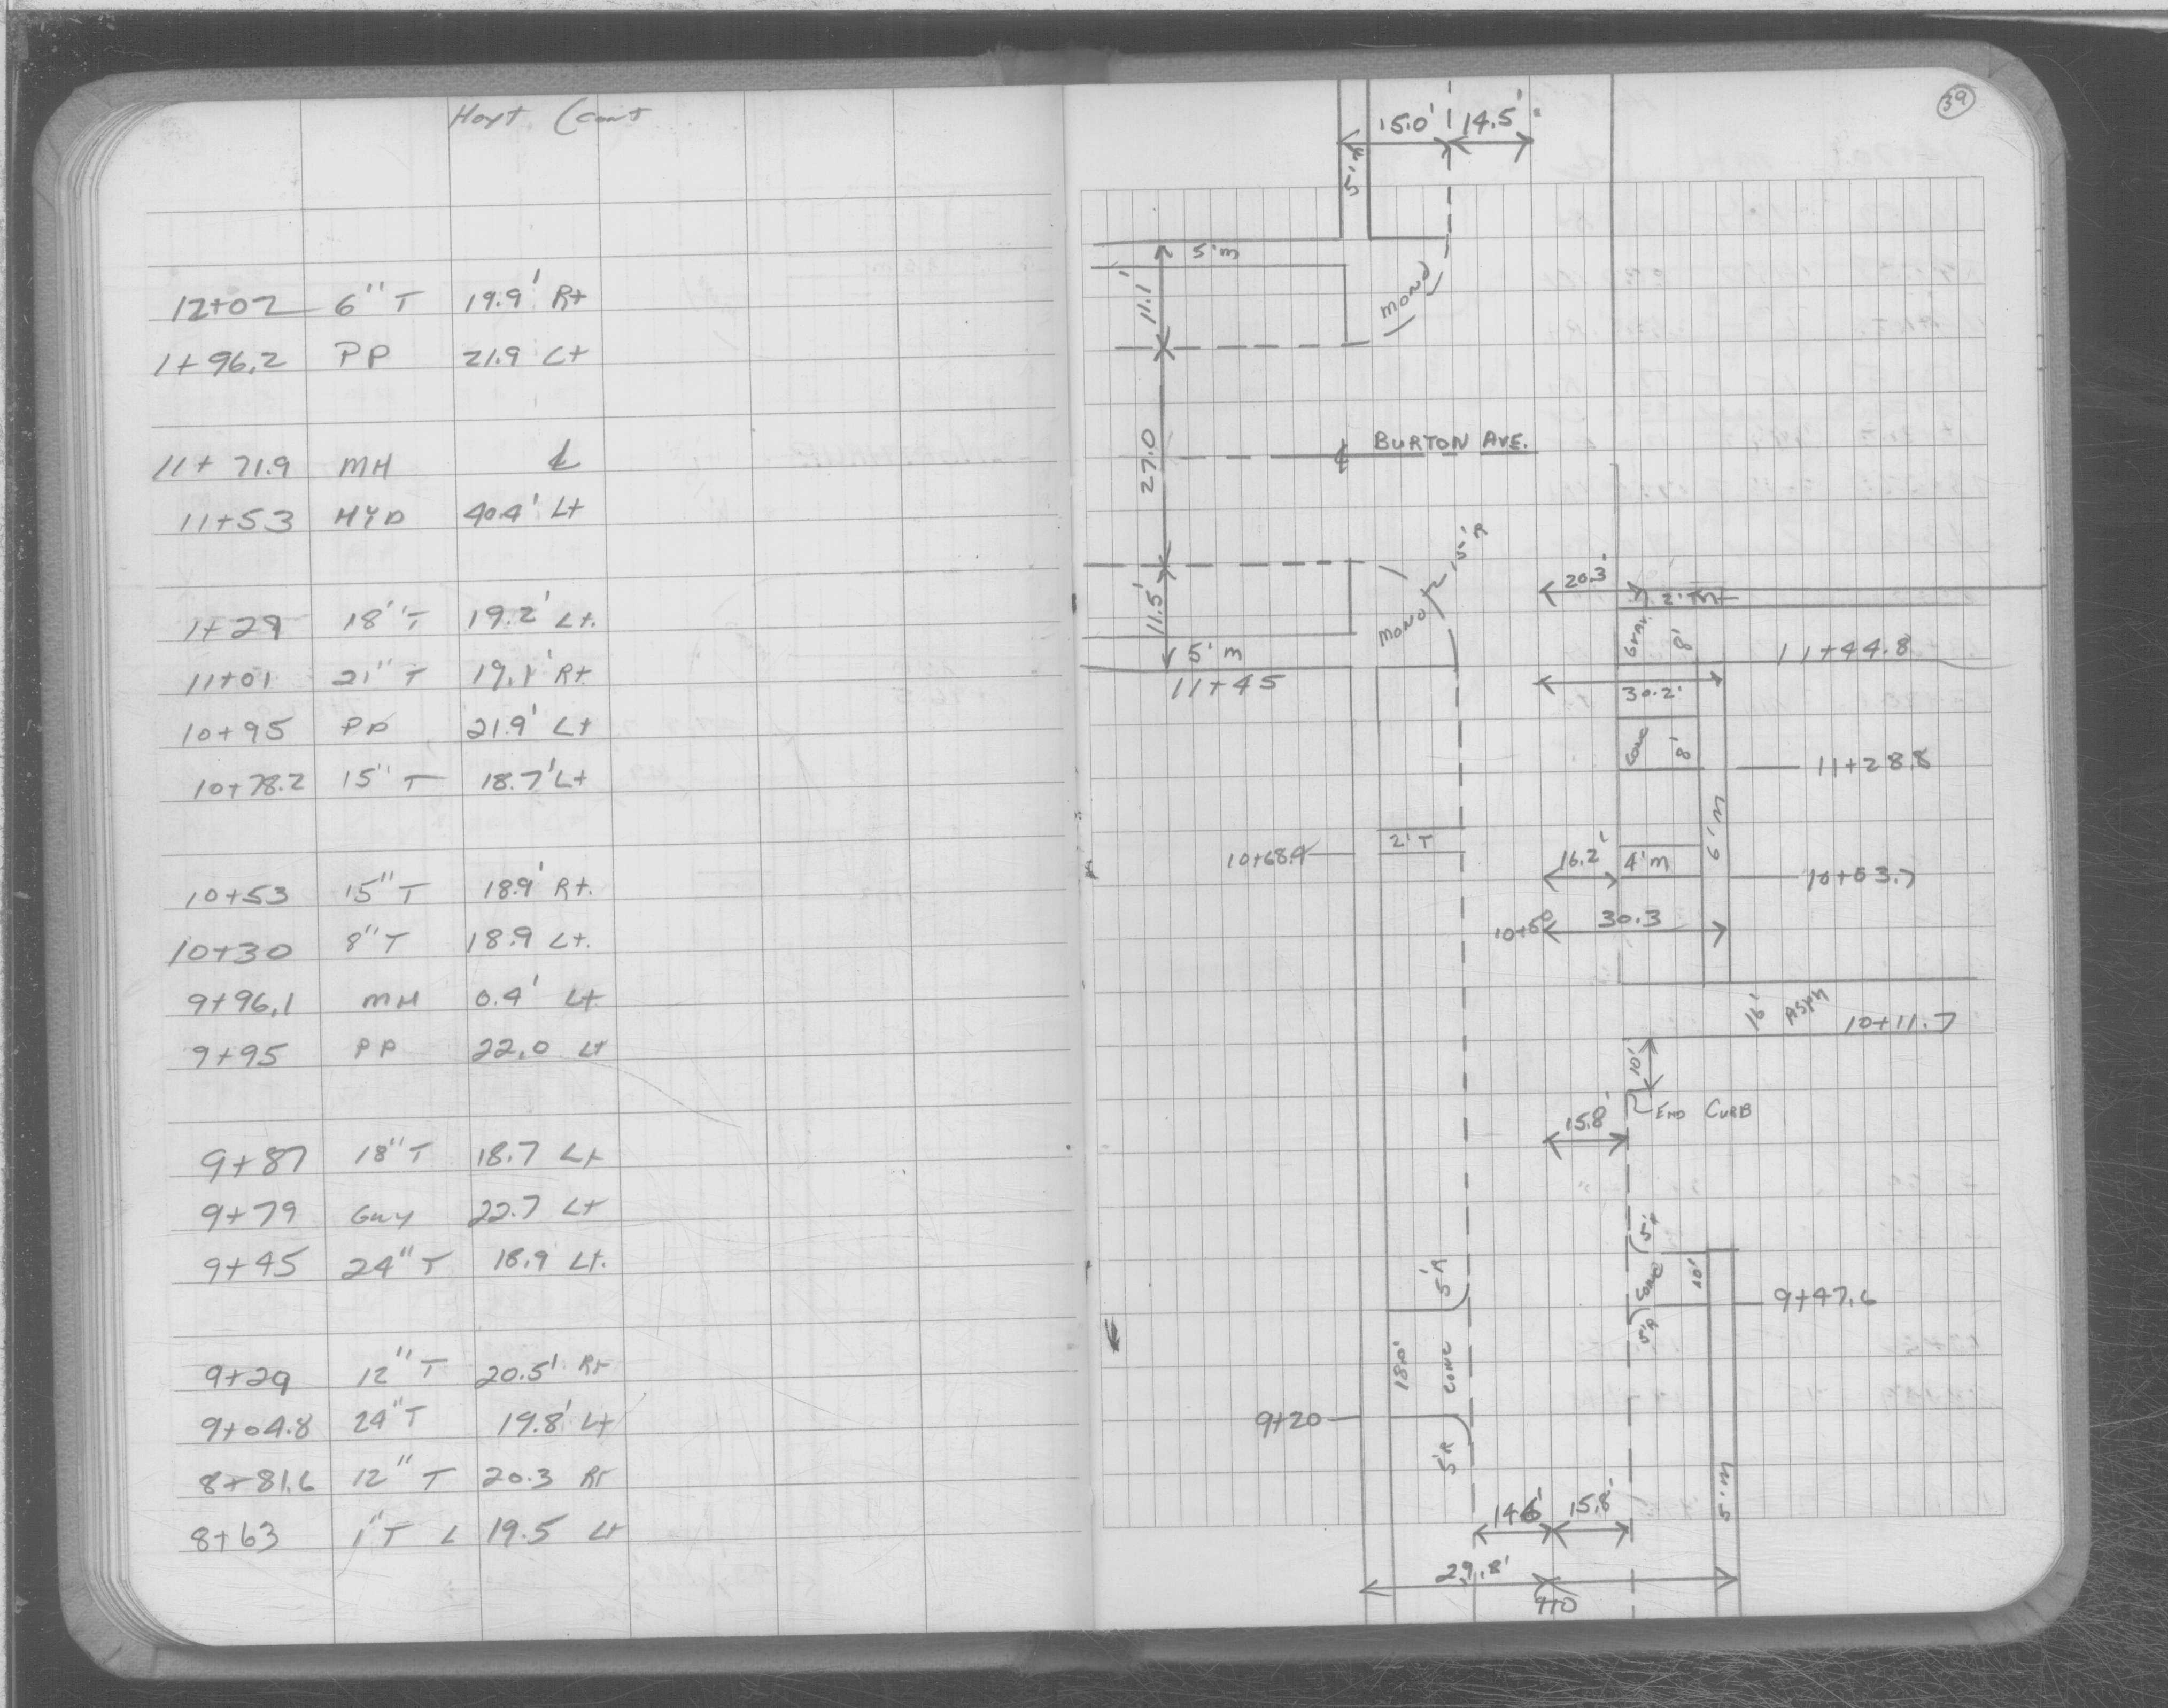 Hoyt (cont
12+02 6" T 19.9' Rt
1+96.2 PP 21.9 Lt
11+71.9 MH ℄
11+53 HYD 40.4' Lt
1+29 18" T 19.2' Lt.
11+01 21" T 19.1' Rt
10+95 PP 21.9' Lt
10+78.2 15" T 18.7' Lt
10+53 15" T 18.9' Rt.
10+30 8" T 18.9 Lt.
9+96.1 MH 0.4' Lt
9+95 PP 22.0 Lt
9+87 18" T 18.7 Lt
9+79 Guy 22.7 Lt
9+45 24" T 18.9 Lt.
9+29 12" T 20.5' Rt
9+04.8 24" T 19.8' Lt
8+81.6 12" T 20.3 Rt
8+63 1" T L 19.5 Lt
39
15.0' 14.5'
5' M
5' M
11.1'
MONO
27.0
℄ BURTON AVE.
5' R
MONO
11.5'
5' M
11+45
20.3'
2' M
GRAV 8'
11+44.8
30.2'
CONC 8'
11+28.8
6' M
10+68.4
2' T
16.2' 4' M
10+63.7
10+60 30.3
16' ASPH 10+11.7
10'
END CURB
15.8'
5' R
CONC 10'
9+47.6
5' R
5' R
18.0' CONC
9+20
5' R
5' M
14.6' 15.8'
29.8'
9+0